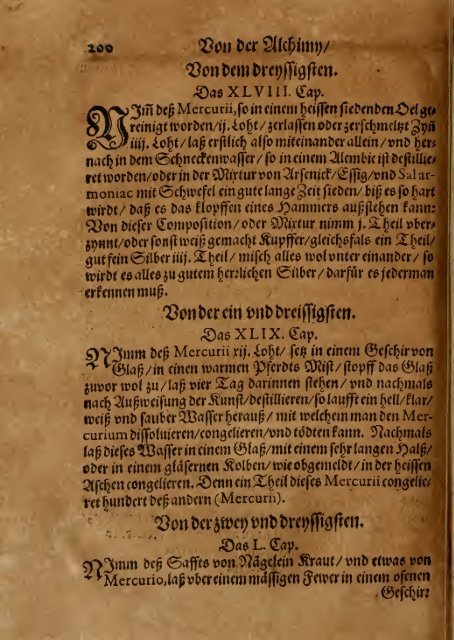 200 Von der Alchimy/
Von dem dreyssigsten.
Das XLVIII. Cap.
NIm̃ deß Mercurii, so in einem heissen siedenden Oel ge
reinigt worden/ij. Loht/zerlassen oder zerschmeltzt Zyñ
iiij. Loht/laß erstlich also miteinander allein/vnd her-
nach in dem Schneckenwasser/so in einem Alembic ist destillie-
ret worden/oder in der Mixtur von Arsenick/Essig/vnd Salar-
moniac mit Schwefel ein gute lange Zeit sieden/biß es so hart
wirdt/daß es das klopffen eines Hammers außstehen kann:
Von dieser Composition/oder Mixtur nimm j. Theil vber-
zynnt/oder sonst weiß gemacht Kupffer/gleichsfals ein Theil/
gut fein Silber iiij. Theil/misch alles wol vnter einander/so
wirdt es alles zu gutem herzlichen Silber/darfür es jederman
erkennen muß.
Von der ein vnd dreissigsten.
Das XLIX. Cap.
NImm deß Mercurii xij. Loht/setz in einem Geschir von
Glaß/in einen warmen Pferdts Mist/stopff das Glaß
zuvor wol zu/laß vier Tag darinnen stehen/vnd nachmals
nach Außweisung der Kunst/destillieren/so laufft ein hell/klar/
weiß vnd sauber Wasser herauß/mit welchem man den Mer-
curium dissoluieren/congelieren/vnd tödten kann. Nachmals
laß dieses Wasser in einem Glaß/mit einem sehr langen Halß/
oder in einem gläsernen Kolben/wie obgemeldt/in der heissen
Aschen congelieren. Denn ein Theil dieses Mercurii congelie-
ret hundert deß andern (Mercurii).
Von der zwey vnd dreyssigsten.
Das L. Cap.
NImm deß Saffts von Nägelein Kraut/vnd etwas von
Mercurio, laß vber einem mässigen Fewer in einem ofenen
Geschirz